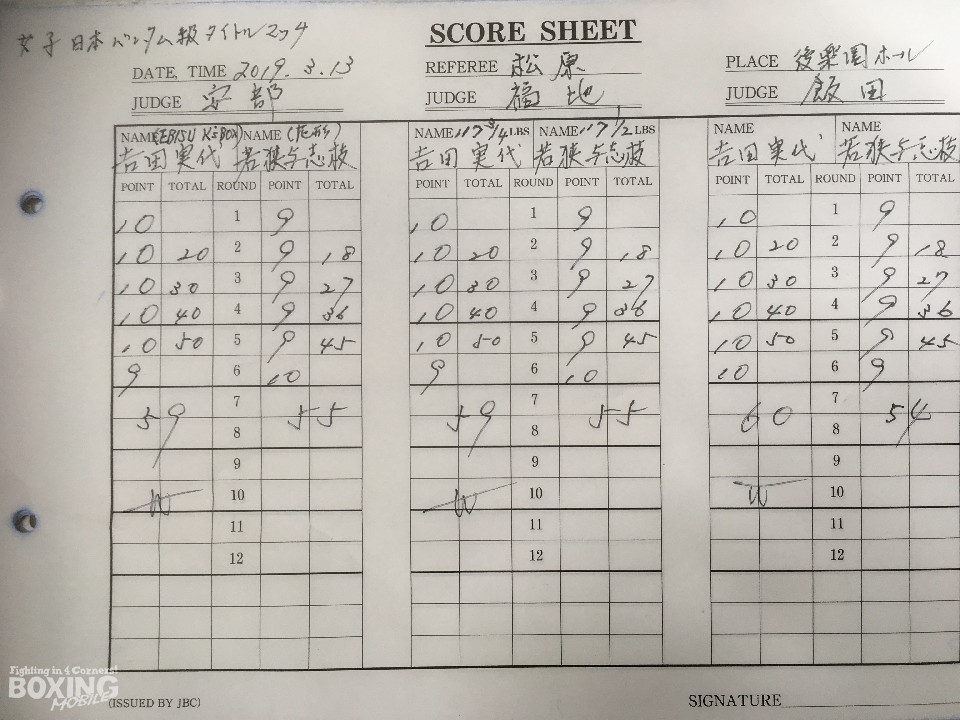 女子日本バンタム級タイトルマッチ
SCORE SHEET
DATE, TIME 2019.3.13
REFEREE 松原
PLACE 後楽園ホール
JUDGE 安部
JUDGE 福地
JUDGE 飯田
NAME (EBISU K's BOX) NAME
NAME 117 3/4 LBS NAME 117 1/2 LBS
NAME NAME
吉田実代 若狭与志枝 吉田実代 若狭与志枝 吉田実代 若狭与志枝
POINT TOTAL ROUND POINT TOTAL POINT TOTAL ROUND POINT TOTAL POINT TOTAL ROUND POINT TOTAL
10 1 9 10 1 9 10 1 9
10 20 2 9 18 10 20 2 9 18 10 20 2 9 18
10 30 3 9 27 10 30 3 9 27 10 30 3 9 27
10 40 4 9 36 10 40 4 9 36 10 40 4 9 36
10 50 5 9 45 10 50 5 9 45 10 50 5 9 45
9 6 10 9 6 10 10 6 9
59 7 55 59 7 55 60 7 54
8 8 8
9 9 9
W 10 W 10 W 10
11 11 11
12 12 12
Fighting in 4 Corners!
BOXING
MOBILE
(ISSUED BY JBC)
SIGNATURE